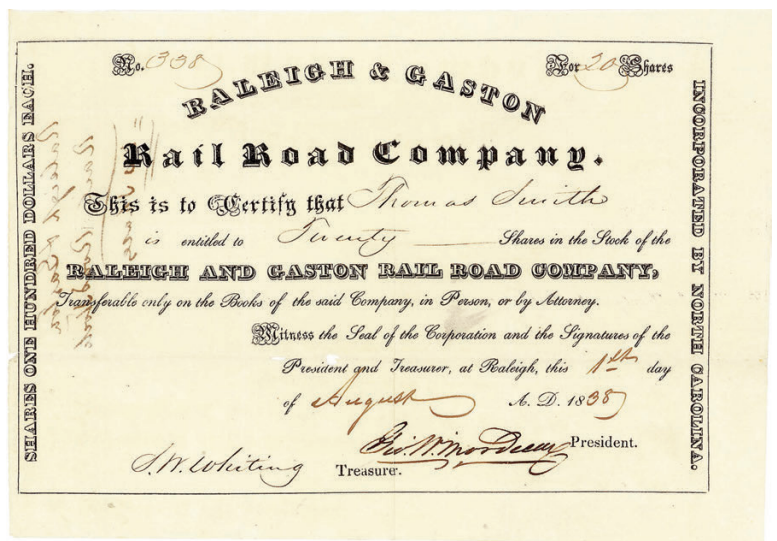 No. 338
For 20 Shares
RALEIGH & GASTON
Rail Road Company.
This is to Certify that Thomas Smith
is entitled to Twenty Shares in the Stock of the
RALEIGH AND GASTON RAIL ROAD COMPANY,
Transferable only on the Books of the said Company, in Person, or by Attorney.
Witness the Seal of the Corporation and the Signatures of the
President and Treasurer, at Raleigh, this 1st day
of August A. D. 1838
Geo. W. Mordecai President.
S. W. Whiting
Treasurer.
SHARES ONE HUNDRED DOLLARS EACH.
INCORPORATED BY NORTH CAROLINA.